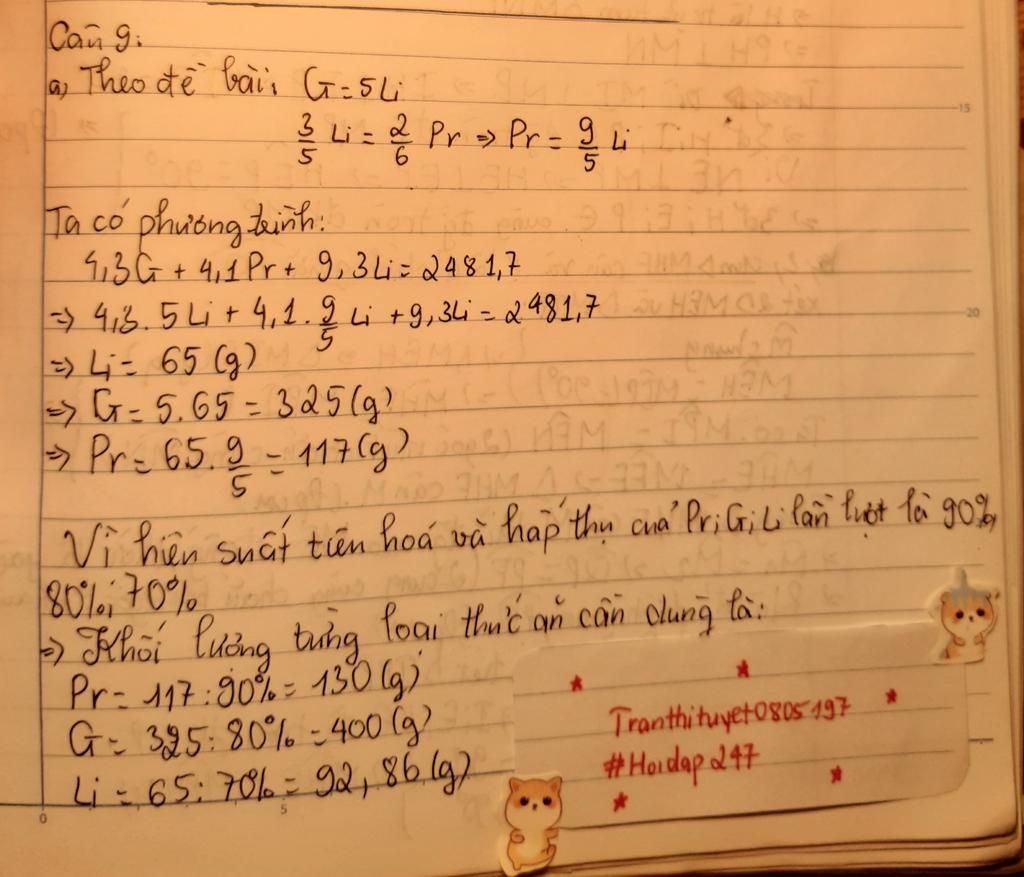 Câu 9:
a, Theo đề bài: G = 5Li
3/5 Li = 2/6 Pr => Pr = 9/5 Li
Ta có phương trình:
4,3G + 4,1Pr + 9,3Li = 2481,7
=> 4,3. 5Li + 4,1. 9/5 Li + 9,3Li = 2481,7
=> Li = 65 (g)
=> G = 5.65 = 325 (g)
=> Pr = 65. 9/5 = 117 (g)
Vì hiên suất tiên hoá và hấp thụ của Pr; G; Li lần lượt là 90%,
80%; 70%
=> Khối lượng từng loại thức ăn cần dùng là:
Pr = 117 : 90% = 130 (g)
G = 325 : 80% = 400 (g)
Li = 65 : 70% = 92,86 (g)
Tranthituyet0805197
#Hoidap247
15
20
0
5